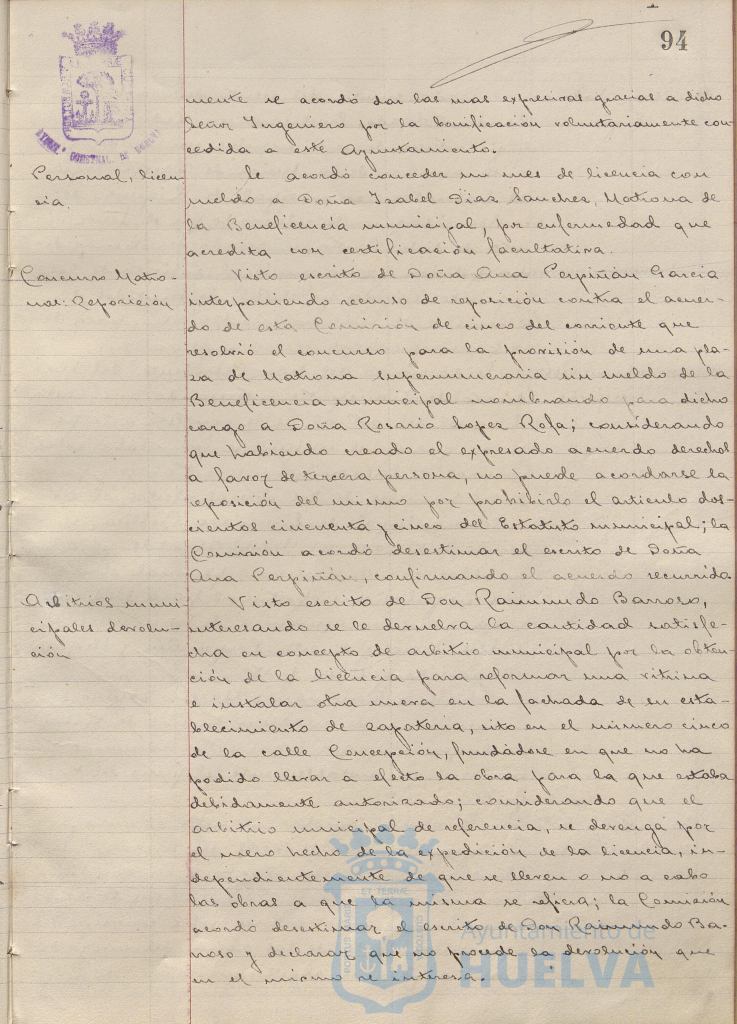 94
mente se acordó dar las mas expresivas gracias a dicho
Señor Ingeniero por la bonificación voluntariamente con-
cedida a este Ayuntamiento.
Personal, licen-
cia.
Se acordó conceder un mes de licencia con
sueldo a Doña Isabel Diaz Sanchez, Matrona de
la Beneficencia municipal, por enfermedad que
acredita con certificación facultativa.
Concurso Matro-
nas: Reposición
Visto escrito de Doña Ana Perpiñán Garcia
interponiendo recurso de reposición contra el acuer-
do de esta Comisión de cinco del corriente que
resolvió el concurso para la provisión de una pla-
za de Matrona supernumeraria sin sueldo de la
Beneficencia municipal nombrando para dicho
cargo a Doña Rosario Lopez Rofa; considerando
que habiendo creado el expresado acuerdo derechos
a favor de tercera persona, no puede acordarse la
reposición del mismo por prohibirlo el articulo dos-
cientos cincuenta y cinco del Estatuto municipal; la
Comisión acordó desestimar el escrito de Doña
Ana Perpiñán, confirmando el acuerdo recurrido.
Arbitrios muni-
cipales devolu-
ción
Visto escrito de Don Raimundo Barroso,
interesando se le devuelva la cantidad satisfe-
cha en concepto de arbitrio municipal por la obten-
ción de la licencia para reformar una vitrina
e instalar otra nueva en la fachada de su esta-
blecimiento de zapateria, sito en el número cinco
de la calle Concepción, fundádose en que no ha
podido llevar a efecto la obra para la que estaba
debidamente autorizado; considerando que el
arbitrio municipal de referencia, se devenga por
el mero hecho de la expedición de la licencia, in-
dependientemente de que se lleven o no a cabo
las obras a que la misma se refiera; la Comisión
acordó desestimar el escrito de Don Raimundo Ba-
rroso y declarar que no procede la devolución que
en el mismo se interesa.
Ayuntamiento de
HUELVA